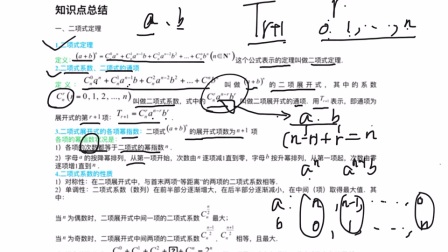 知识点总结
一、二项式定理
1.二项式定理
定义：(a+b)^n = C_n^0 a^n + C_n^1 a^{n-1}b^1 + ... + C_n^n b^n (n∈N*) 这个公式表示的定理叫做二项式定理.
2.二项式系数、二项式的通项
C_n^0 a^n + C_n^1 a^{n-1}b^1 + ... + C_n^n b^n 叫做 (a+b)^n 的二项展开式，其中的系数
C_n^r (r=0,1,2,...,n) 叫做二项式系数，式中的 叫做二项展开式的通项. 用 表示，即通项为
展开式的第 r+1 项：T_{r+1} =
3.二项式展开式的各项幂指数：二项式 (a+b)^n 的展开式项数为 n+1 项
1）各项的次数都等于二项式的幂指数
2）字母 a 的按降幂排列，从第一项开始，次数由 逐项减1直到零，字母 b 按升幂排列，从第一项起，次数由零
逐项增1直到
4.二项式系数的性质
1）对称性：在二项展开式中，与首末两项"等距离"的两项的二项式系数相等.
2）单调性：二项式系数（数列）在前半部分逐渐增大，在后半部分逐渐减小，在中间（项）取得最大值. 其
中：
当 n 为偶数时，二项展开式中间一项的二项式系数 最大；
当 n 为奇数时，二项展开式中间两项的二项式系数 相等，且最大.
a . b
T_{r+1}
0. 1, ..., n
a . b
(n-r+r=n
a^n a^{n-1}b
a: n, n-1, ..., 0
b 0 1 ... n